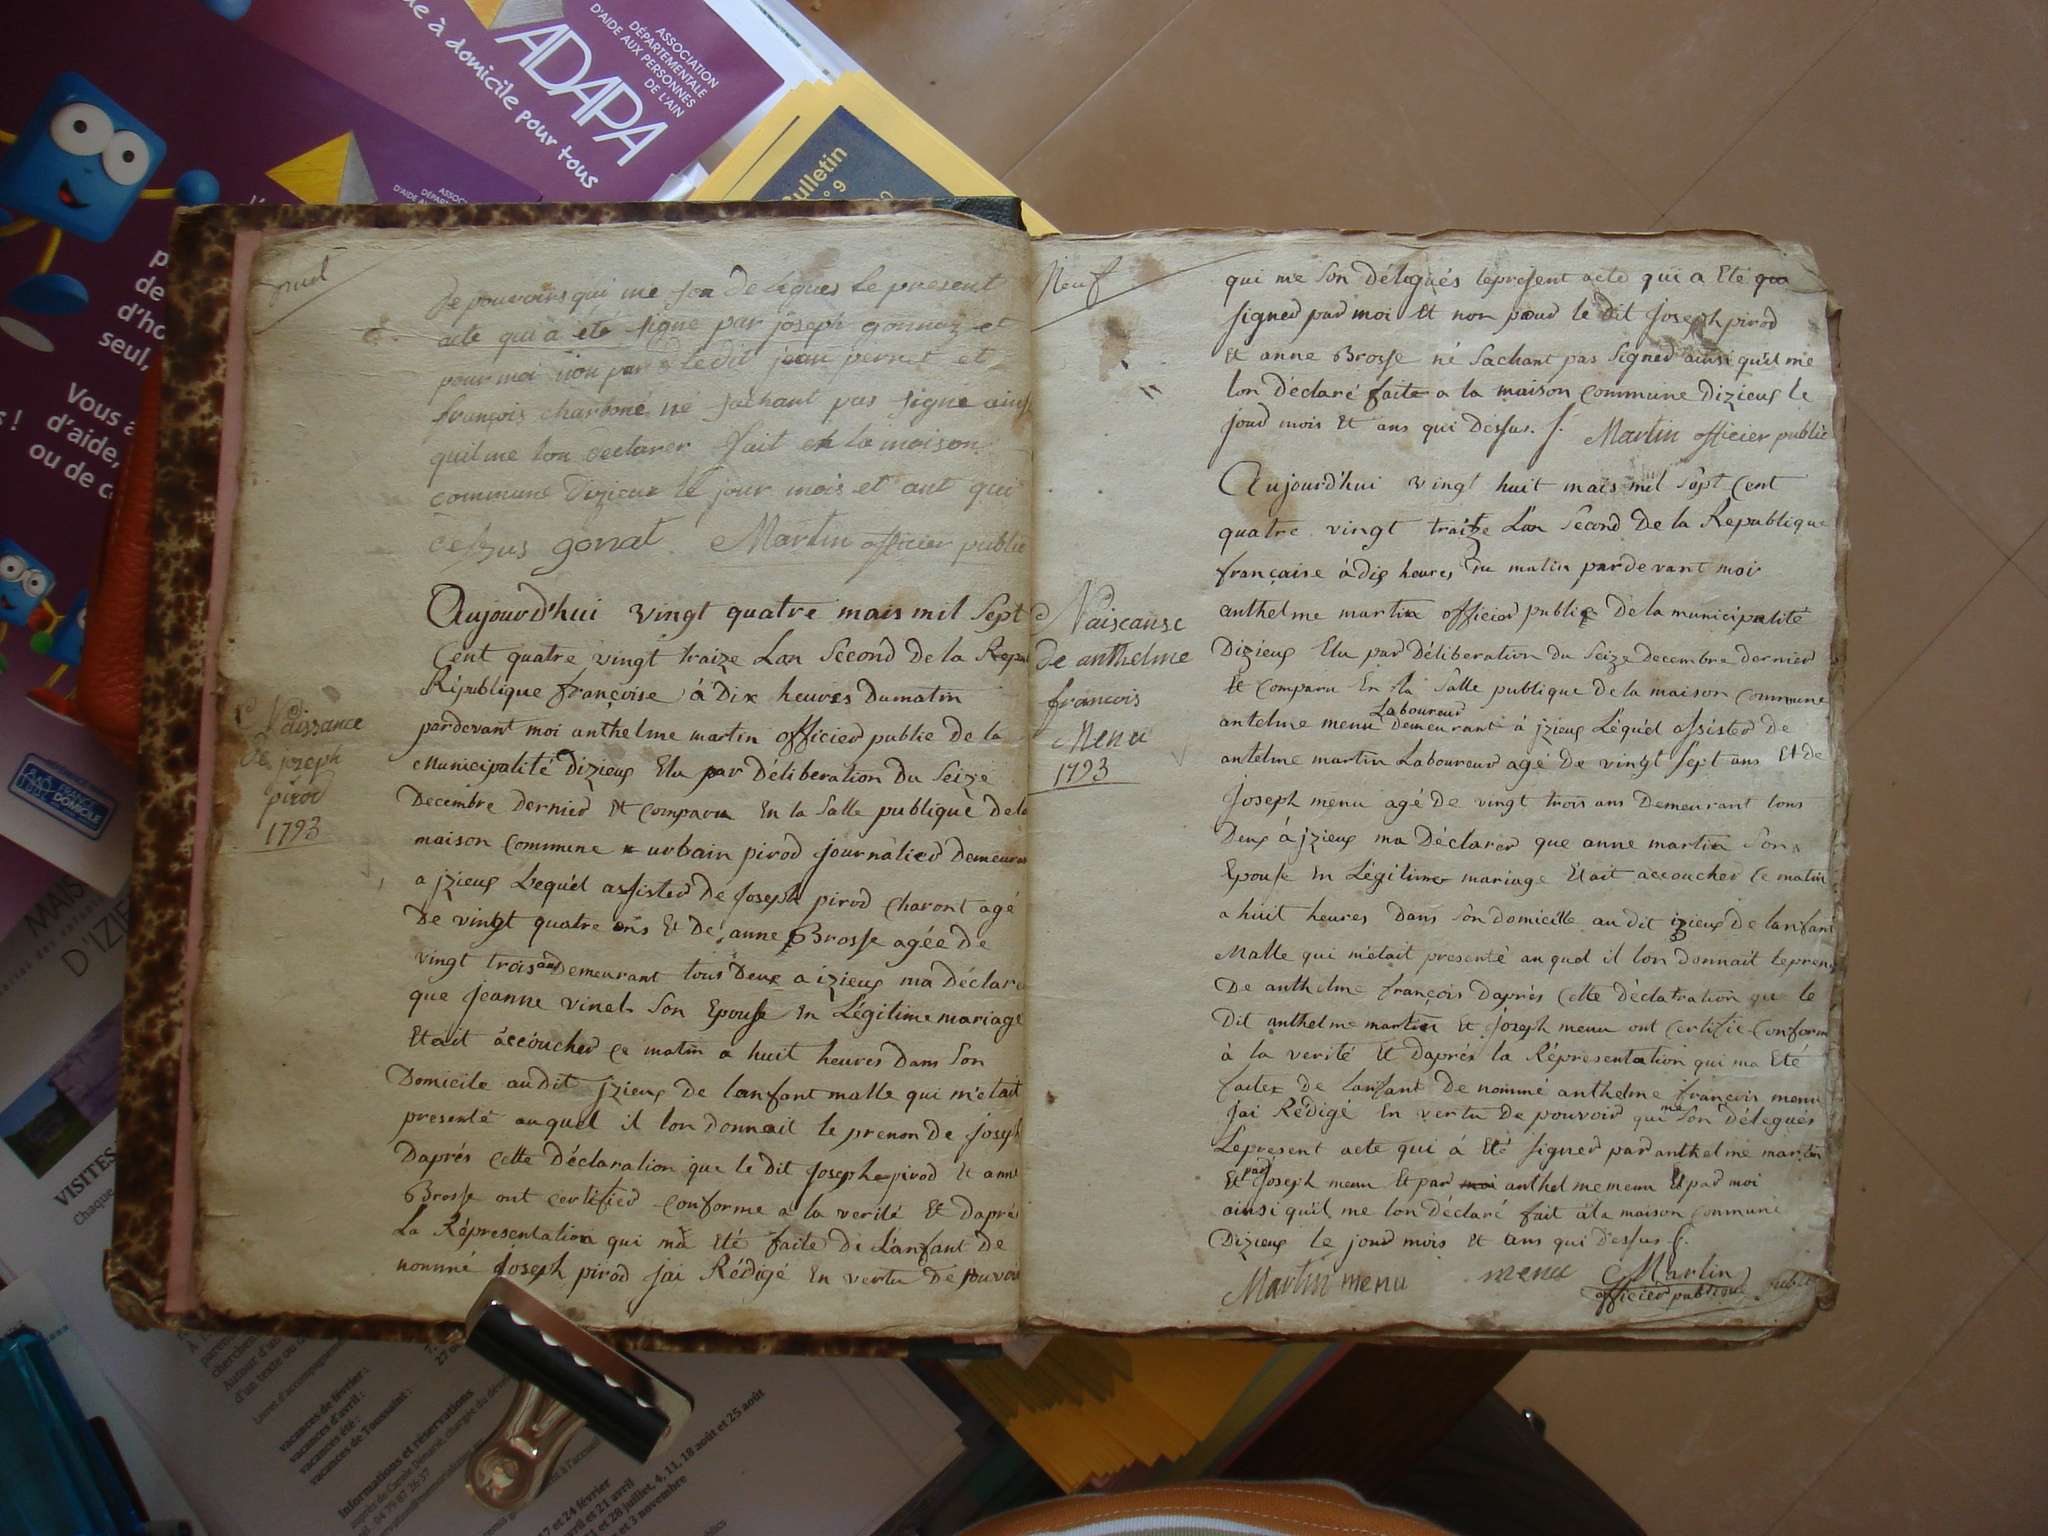 ADAPA
ASSOCIATION
DÉPARTEMENTALE
D'AIDE AUX PERSONNES
DE L'AIN
à domicile pour tous
Bulletin
n° 9
seul,
d'aide,
ou de
FRANCE
DOMICILE
MAIS
D'IZIE
VISITES
vacances de février :
vacances d'avril :
vacances été :
vacances de Toussaint :
Informations et réservations
17 et 24 février
avril et 21 avril
et 28 juillet, 4, 11, 18 août et 25 août
et 3 novembre
de pouvoirs qui me son de legues le present
acte qui a eté signe par joseph gonnaz et
pour moi non par ledit jean pernet et
françois charboné né sachant pas signe ainsi
quil me lon declarer fait en la maison
commune dizieux le jour mois et ant qui
desus gonat Martin officier public
Naissance
de jozeph
pirod
1793
Aujourd'hui vingt quatre mais mil Sept
Cent quatre vingt traize Lan Second de la Repu
République françoise à Dix heures Dumatin
pardevant moi anthelme martin officier public de la
Municipalité Dizieux Elu par Déliberation Du Seize
Decembre Dernier Et comparu En la Salle publique Dela
maison Commune urbain pirod journalier Demeurant
a jzieux Lequél assister de Joseph pirod charont agé
De vingt quatre ans Et De anne Brosse agée de
vingt trois ans Demeurant tous Deux a izieux ma Déclaré
que Jeanne vinel Son Epouse En Légitime mariage
Etait àccoucher ce matin a huit heures Dans Son
Domicile audit jzieux De lanfant malle qui m'etait
presenté auquel il lon donnait le prenon de joseph
Daprés cette Déclaration que le dit joseph pirod Et anne
Brosse ont certifier conforme a la verité Et Daprés
La Réprésentation qui ma Eté faite De L'anfant De
nommé Joseph pirod jai Rédigé En vertu De pouvoir
Neuf
qui me Son Délegués le present acte qui a Eté
signer par moi Et non pour le Dit Joseph pirod
Et anne Brosse né Sachant pas Signer ainsi qu'il me
lon Déclaré faite a la maison Commune Dizieux le
jour mois Et ans qui Desus. Martin officier public
Naiscanse
de anthelme
francois
Menu
1793
Aujourd'hui vingt huit mais mil Sept Cent
quatre vingt traize L'an Second De la Republique
française à dix heures du matin pardevant moi
anthelme martin officier public De la municipalité
Dizieux Elu par Déliberation Du Seize Decembre dernier
Et comparu En la Salle publique de la maison commune
Laboureur
antelme menu Demeurant à jzieux Léquél assister De
antelme martin Laboureur agé De vingt Sept ans Et de
joseph menu agé De vingt trois ans Demeurant tous
Deux à jzieux ma Déclarer que anne martin Son
Epouse En Légitime mariage Etait accoucher ce matin
a huit heures Dans Son domicille audit izieux De lanfant
Malle qui m'etait presenté auquel il lon donnait le prenon
De anthelme françois Daprés cette déclatration que le
Dit anthelme martin Et Joseph menu ont certifié conforme
à la verité Et Daprés la Réprésentation qui ma Eté
faites De lanfant De nommé anthelme françois menu
Jai Rédigé En vertu De pouvoir qui me Son Délegués
Le present acte qui à Eté signer par anthelme martin
Et par Joseph menu Et par moi anthelme menu Et par moi
ainsi qu'il me lon Déclaré fait à la maison Communé
Dizieux Le jour mois Et ans qui Dessus
Martin menu menu Martin
officier publique